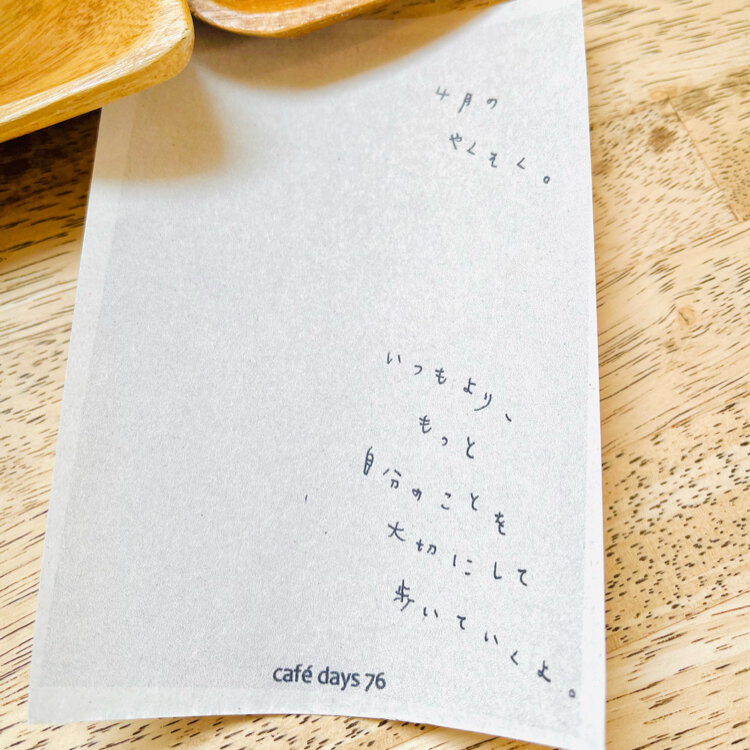 4月の
やくそく。
いつもより、
もっと
自分のことを
大切にして
歩いていくよ。
café days 76